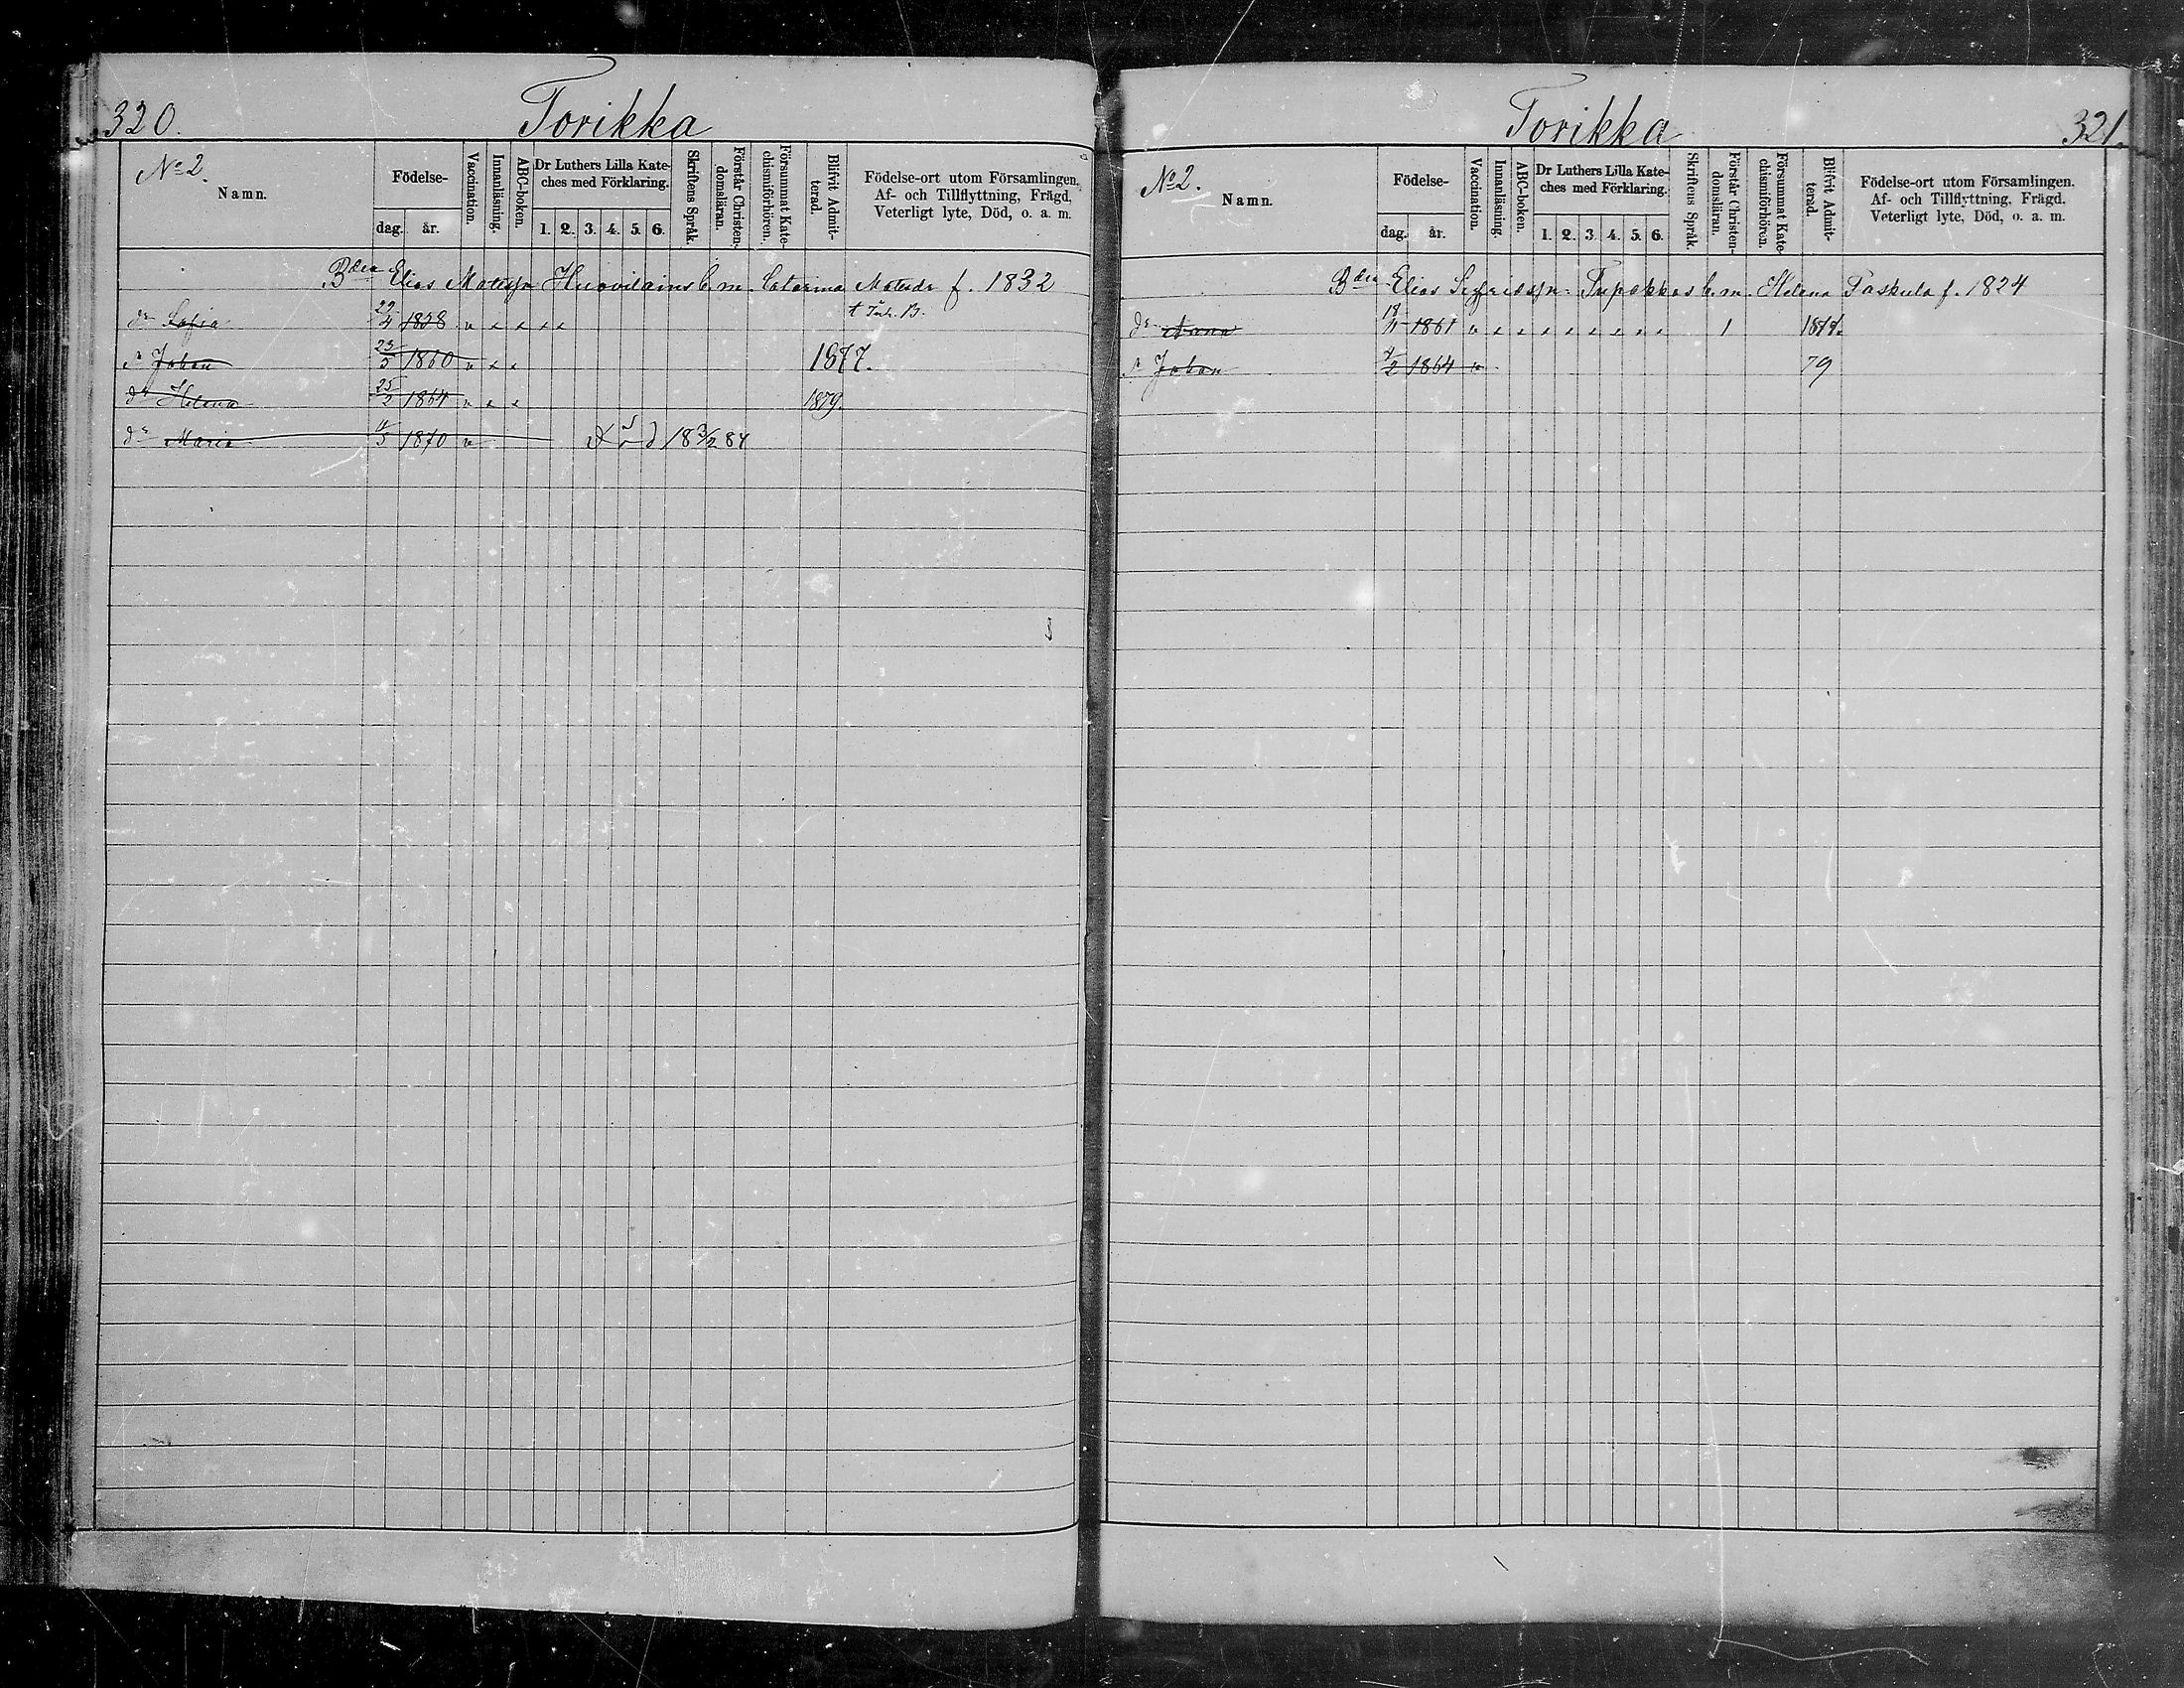 320.
Torikka
№ 2.
Namn.
Födelse-
dag.
år.
Vaccination.
Innanläsning.
ABC-boken.
Dr Luthers Lilla Kate-
ches med Förklaring.
1. 2. 3. 4. 5. 6.
Skriftens Språk.
Förstår Christen-
domsläran.
Försummat Kate-
chismiförhören.
Blifvit Admit-
terad.
Födelse-ort utom Församlingen,
Af- och Tillflyttning, Frägd,
Veterligt lyte, Död, o. a. m.
Elias Matsson Huovilains b. m. Catarina Matsdr f. 1832
dr Sofia 29/4 1858 v x x x x
s Johan 23/5 1860 v x x 1877.
dr Helena 25/5 1864 v x x 1879.
dr Maria 4/5 1870 v Död 18 3/2 84
Torikka
321.
№ 2.
Namn.
Födelse-
dag.
år.
Vaccination.
Innanläsning.
ABC-boken.
Dr Luthers Lilla Kate-
ches med Förklaring.
1. 2. 3. 4. 5. 6.
Skriftens Språk.
Förstår Christen-
domsläran.
Försummat Kate-
chismiförhören.
Blifvit Admit-
terad.
Födelse-ort utom Församlingen.
Af- och Tillflyttning, Frägd.
Veterligt lyte, Död, o. a. m.
Elias Sigfridssn Tupakkas b. m. Helena Taskula f. 1824
dr Anna 18/11 1861 v 1
s Johan 4/2 1864 v 79